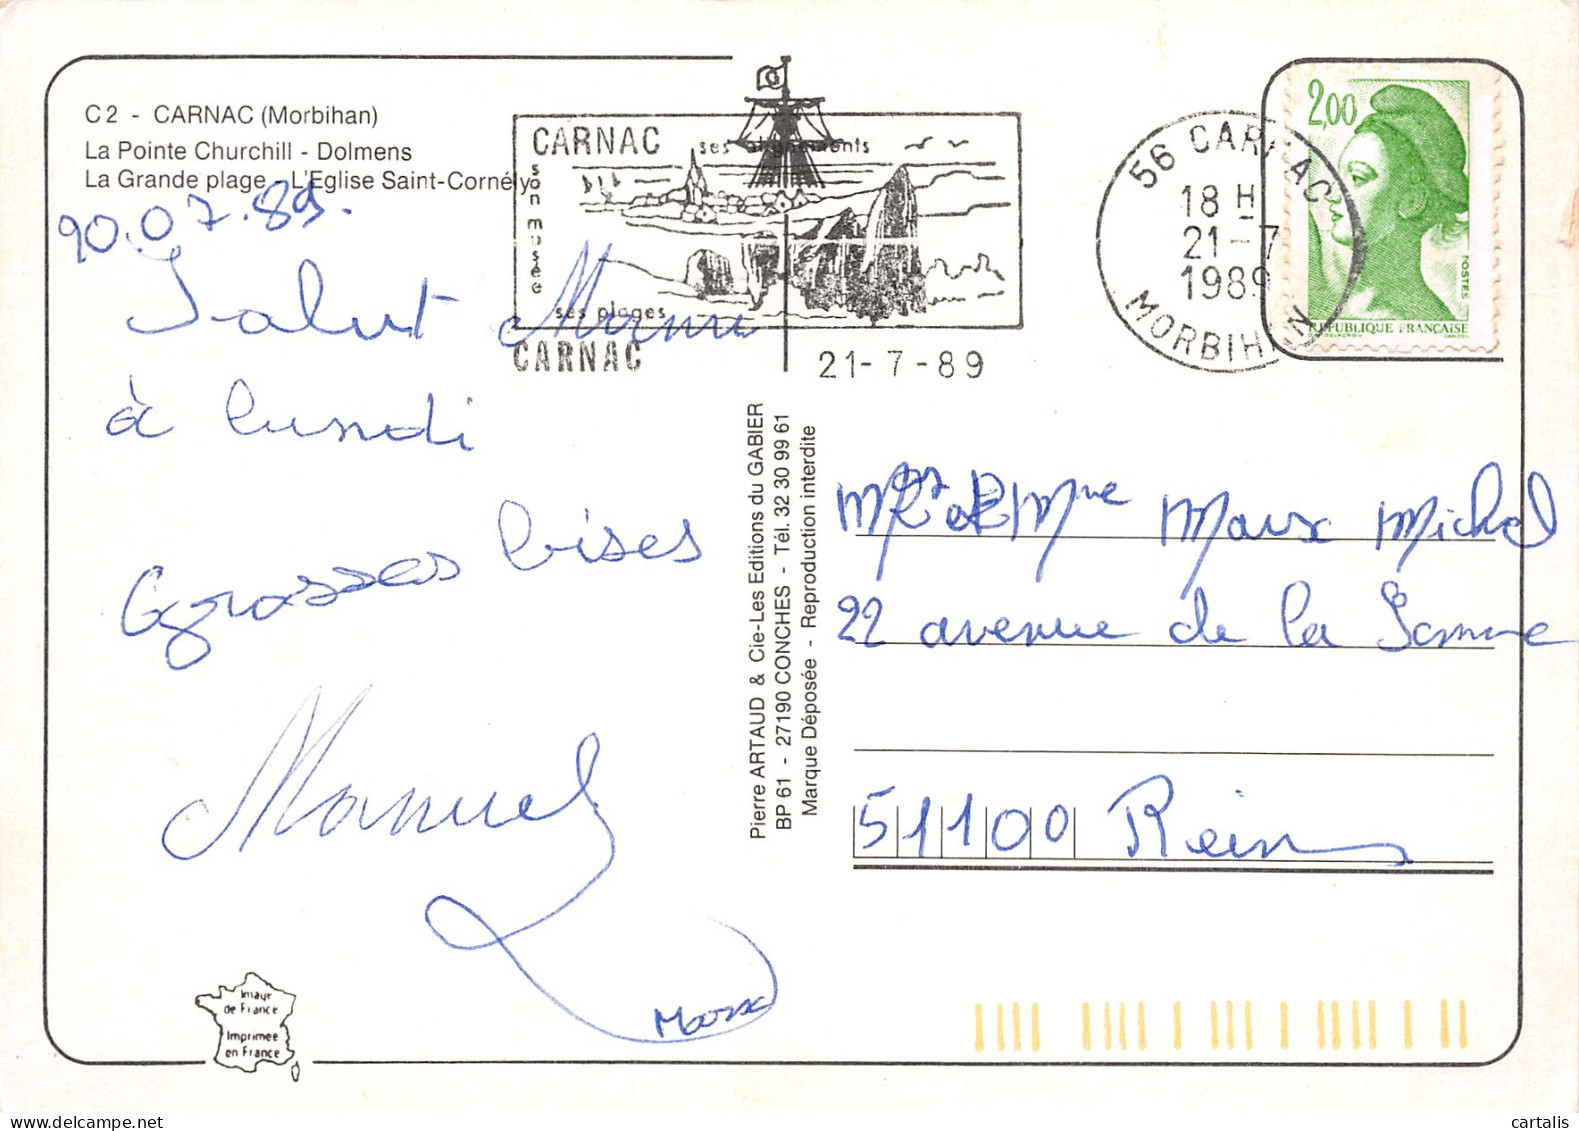 C 2 - CARNAC (Morbihan)
La Pointe Churchill - Dolmens
La Grande plage - L'Eglise Saint-Cornély
20.07.89.
Salut Manu
à lundi
Grosses bises
Manuel
Marx
CARNAC
ses alignements
son musée
ses plages
CARNAC
21-7-89
56 CARNAC
18 H
21-7
1989
MORBIHAN
2,00
POSTES
RÉPUBLIQUE FRANÇAISE
Pierre ARTAUD & Cie-Les Editions du GABIER
BP 61 - 27190 CONCHES - Tél. 32 30 99 61
Marque Déposée - Reproduction interdite
Mr et Mme Marx Michel
22 avenue de la Somme
51100 Reims
Image
de France
Imprimée
en France
cartalis